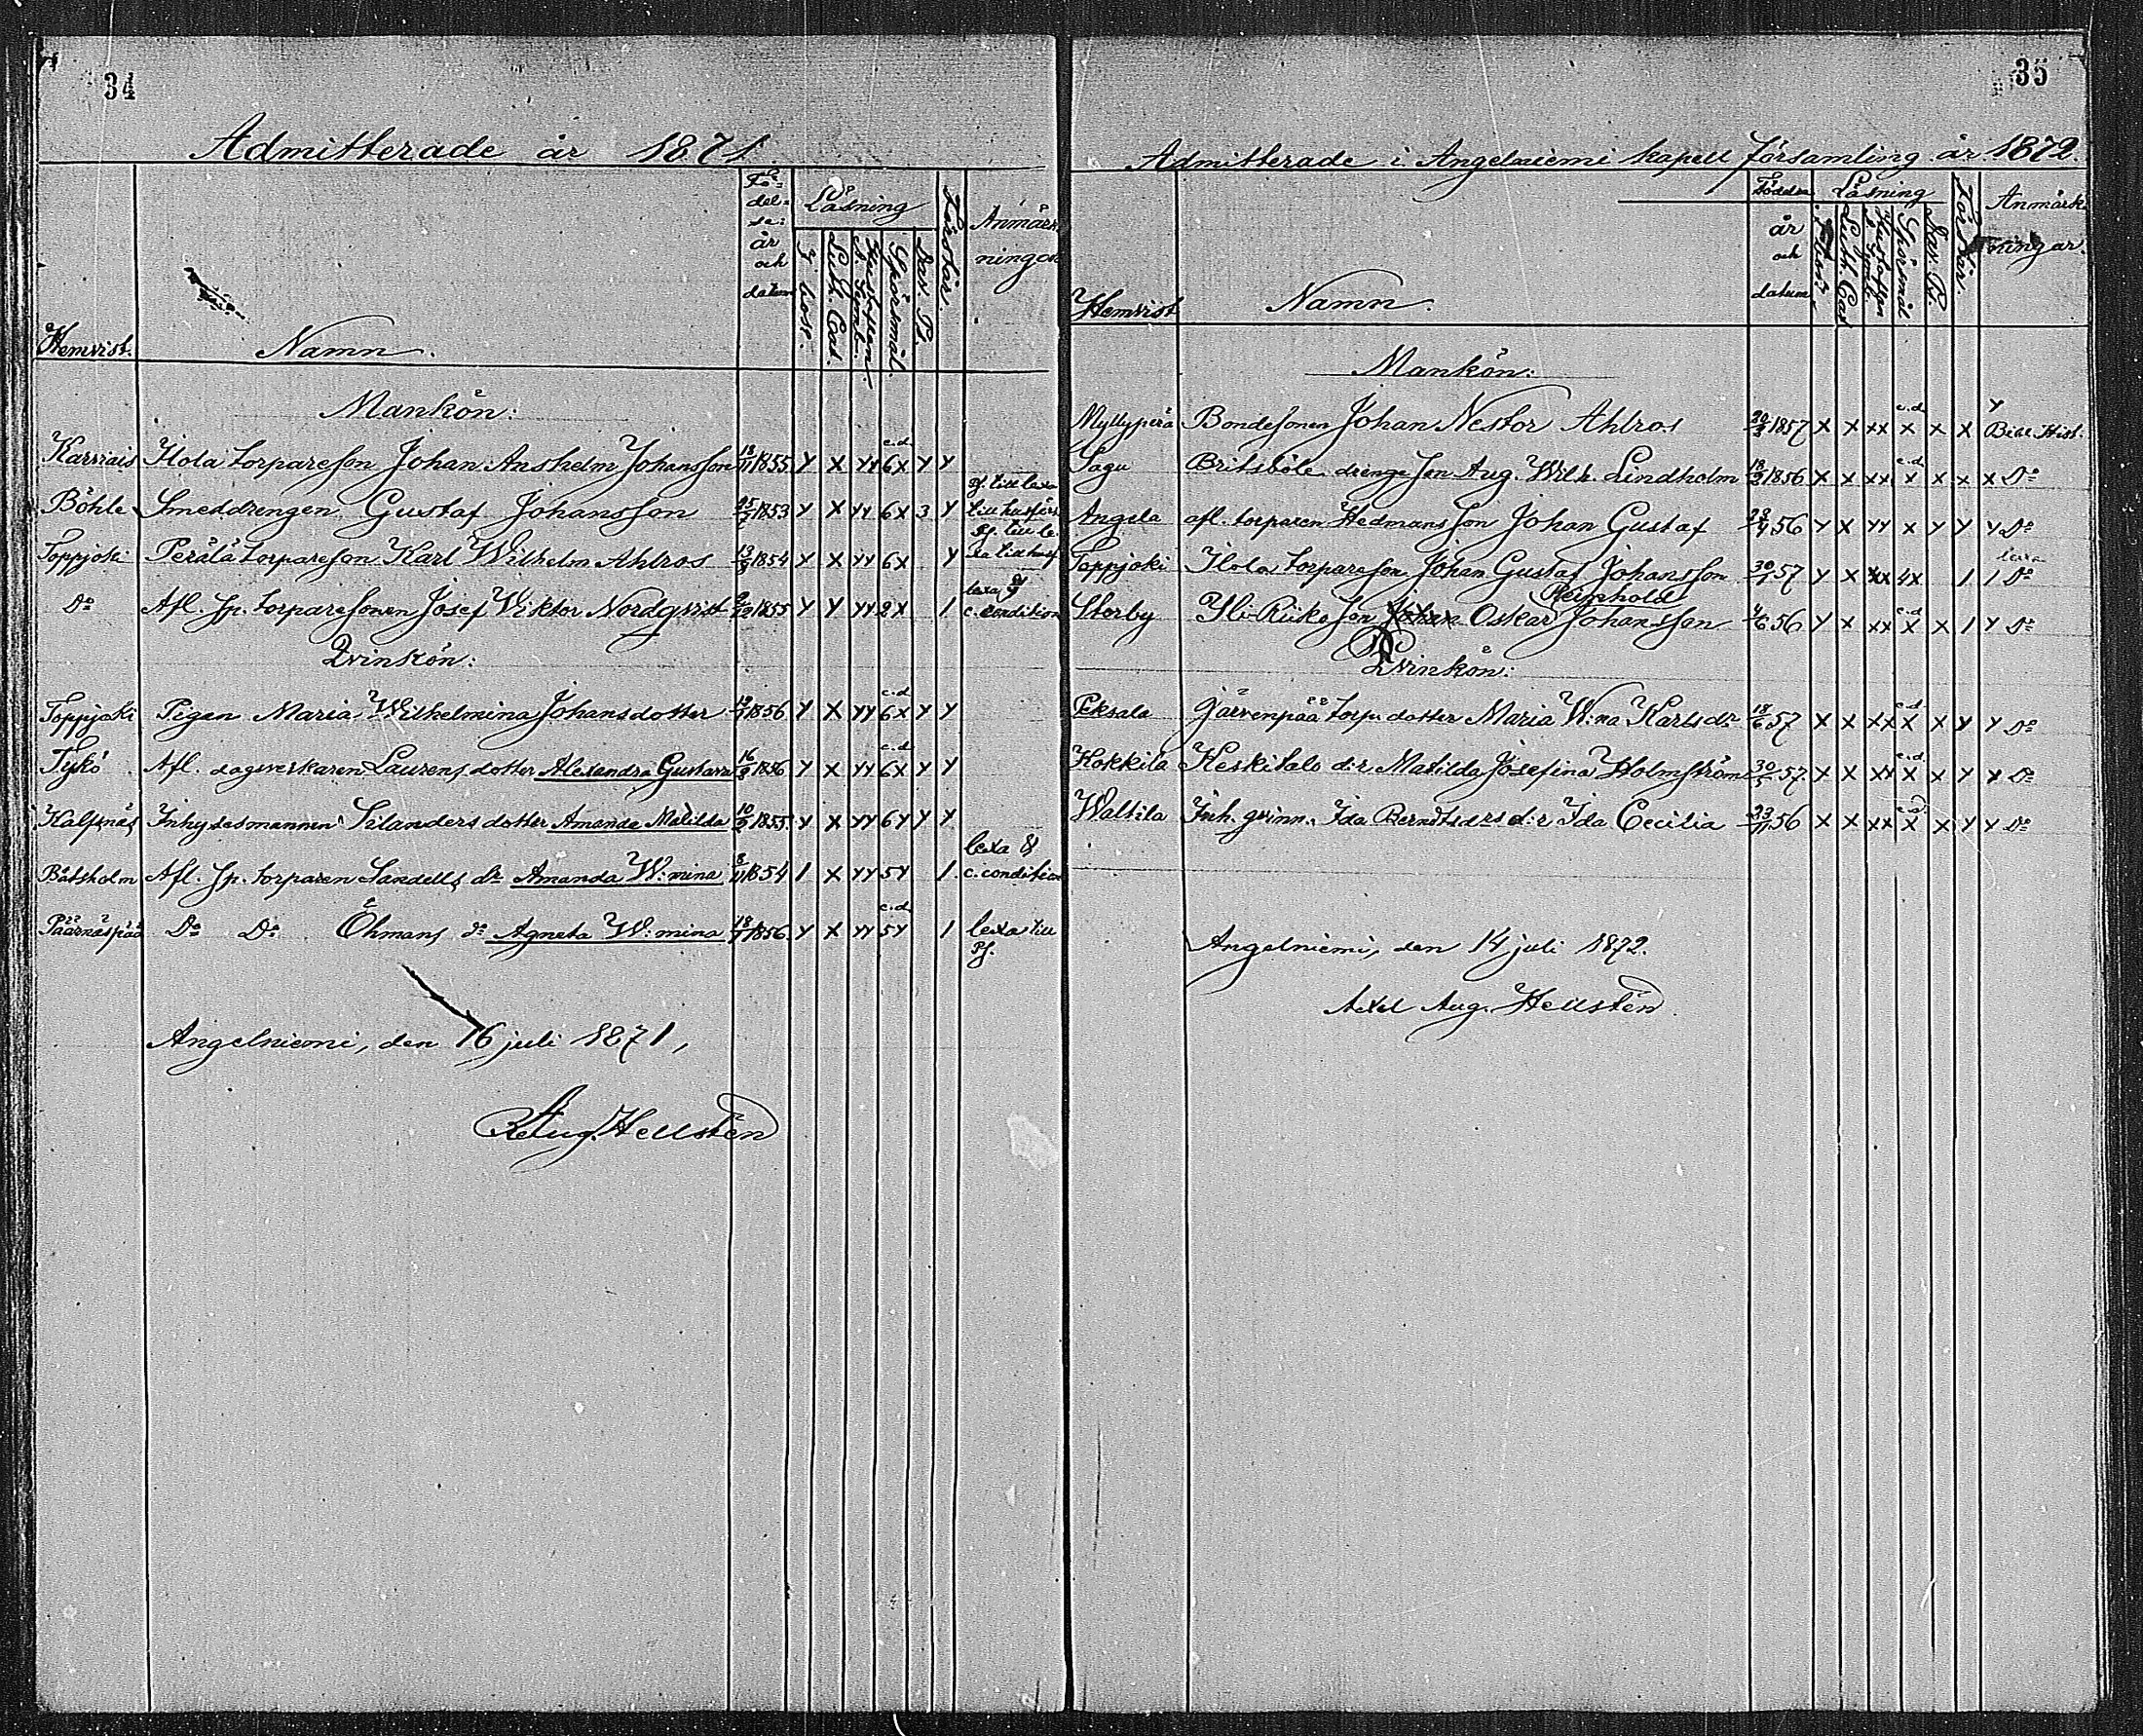 34
Admitterade år 1871.
Hemvist. Namn. Födel-se: år och datum Läsning I bok. Luth. Cat. Spörsmål. Dav. Ps. Förstår. Anmärkningar
Mankön:
Karviais Ilola torpareson Johan Anshelm Johansson 18/11 1855. Y X YY c.d. 6X Y Y
Böhle Smeddrengen Gustaf Johansson 25/7 1853 Y X YY 6X 3 Y
Toppjoki Perälä torpareson Karl Wilhelm Ahlros 13/3 1854 Y X YY 6X Y
Do Afl. Sp. torparesonen Josef Wiktor Nordqvist 1855 Y Y YY 2X 1 lexa & c. condition
Qvinkön:
Toppjoki Pigan Maria Wilhelmina Johansdotter 1856 Y X YY c.d. 6X Y Y
Tykö Afl. dagsverkaren Laurens dotter Alexandra Gustava 16/3 1856 Y X YY c.d. 6X Y Y
Kalfsnäs Inhysesmannen Silanders dotter Amanda Matilda 1855. Y X YY 6Y Y Y
Båtsholm Afl. Sp. torparen Sandells dr Amanda W:mina 8/11 1854 1 X YY 5Y 1. lexa & c. condition
Päärnäspää Do Do Öhmans dr Agneta W:mina 1856. Y X YY c.d. 5Y 1 lexa till Ps.
Angelniemi, den 16 juli 1871,
Aug. Hellstén
35
Admitterade i Angelniemi kapell församling år 1872.
Hemvist Namn. Födelse år och datum Läsning Luth. Cat Spörsmål Dav. Ps. Förstår. Anmärkningar.
Mankön:
Myllyperä Bondesonen Johan Nestor Ahlros 1857 X X XX c.d. X X X Y Bibl. Hist.
Sagu Britsböle drenge son Aug. Wilh. Lindholm 1856 X X XX c.d. X X X X Do
Angela afl. torparen Hedmans son Johan Gustaf 56 Y X YY X Y Y Y Do
Toppjoki Ilola torpareson Johan Gustaf Johansson 57 Y X XX 4X 1 1 lexa Do
Reinhold
Storby Yli-Riiko son Johan Oskar Johansson 4/6 56 Y X XX c.d. X X 1 Y Do
Qvinkön:
Peksala Järvenpää torp. dotter Maria W:na Karlsdr 18/6 57 X X XX c.d. X X Y Y Do
Kokkila Keskitalo d:r Matilda Josefina Holmström 57. X X XX c.d. X X Y Y Do
Waltila Inh. qvinn. Ida Berndtsdrs d:r Ida Cecilia 23/11 56 X X XX c.d. X X Y Y Do
Angelniemi, den 14 juli 1872.
Axel Aug. Hellstén.